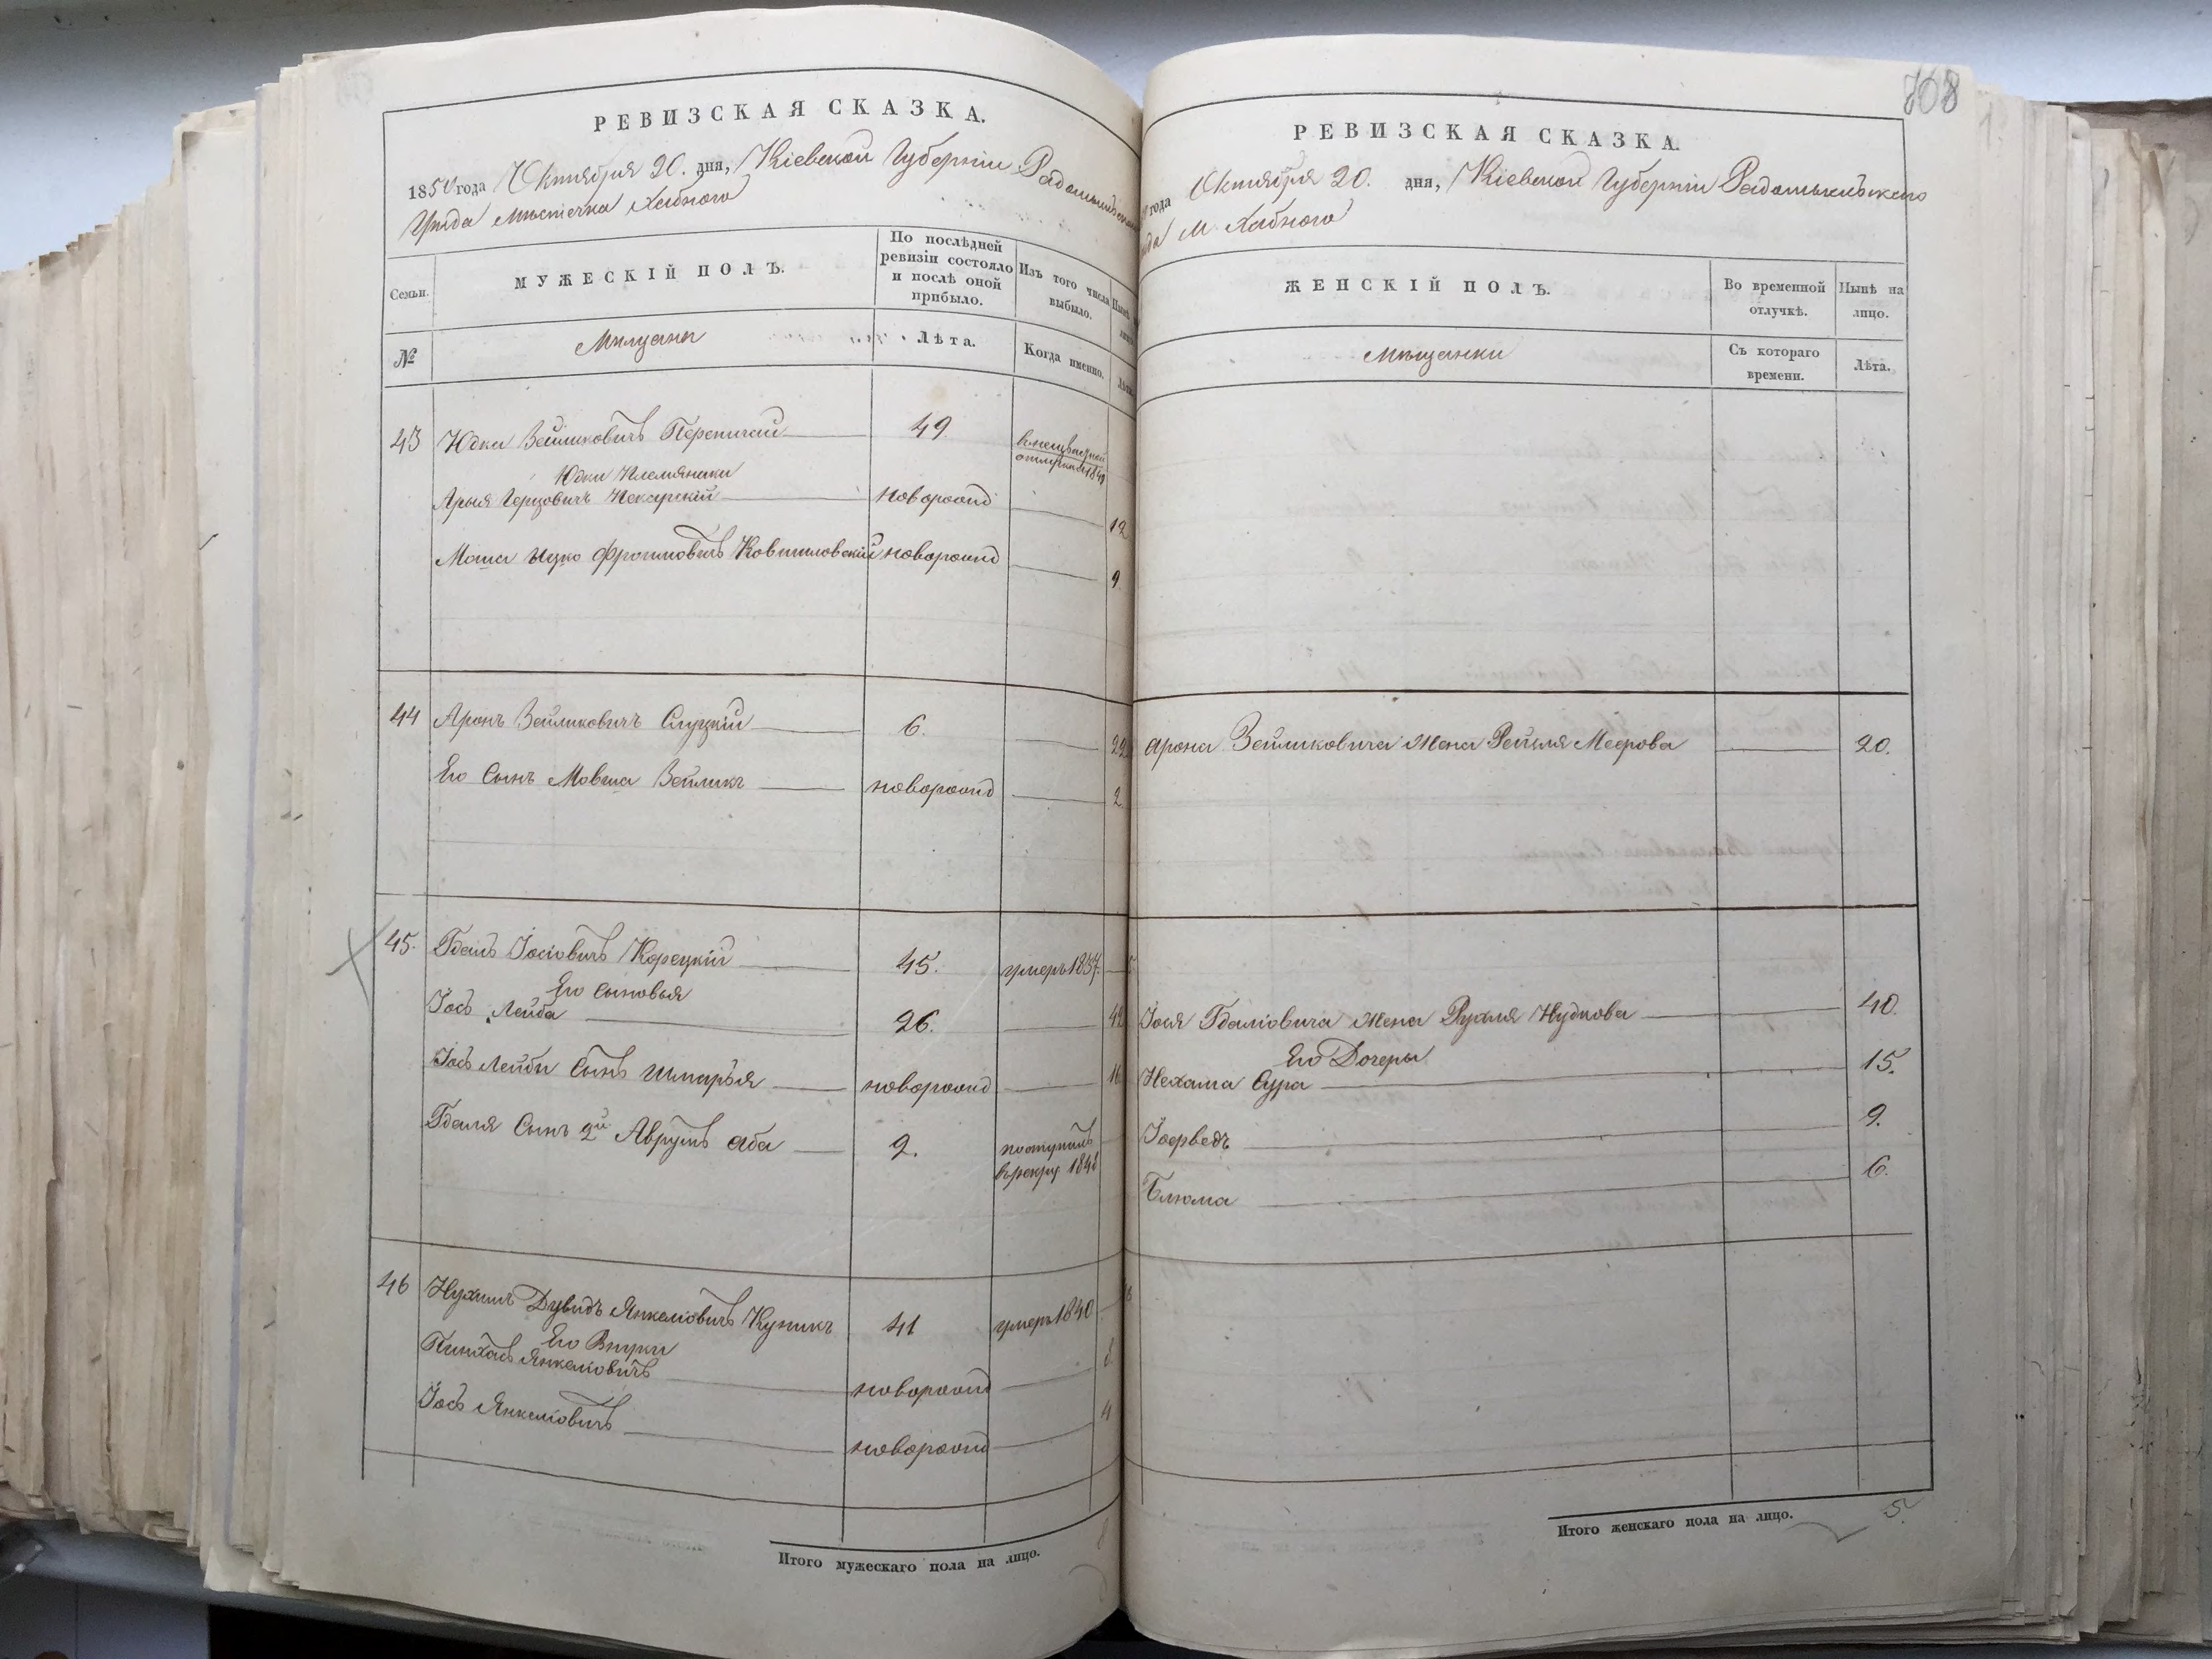 РЕВИЗСКАЯ СКАЗКА.
1850 года Октября 20. дня, Кіевской Губерніи Радомысльскаго
Уѣзда Мѣстечка Хабного
Семьи.
МУЖЕСКІЙ ПОЛЪ.
По послѣдней ревизіи состояло и послѣ оной прибыло.
Изъ того числа выбыло.
Нынѣ
№
Мѣщане
Лѣта.
Когда именно.
Лѣта.
43 Юдка Зейликовичъ Перепичай 49.
отлучкѣ 1849
Юдки Племянники
Арыя Герцовичъ новорожд 12
Мошка Ицко Фроимовичъ новорожд 9.
44 Аронъ Зейликовичъ Слуцкій 6. 22
Его Сынъ Мовша Зейликъ новорожд 2.
45. Гдаль Іосіовичъ Корецкій 45. умеръ 1837.
Его Сыновья
Іось Лейба 26. 42
Іось Лейбы Сынъ Шмарья новорожд 16
Гдаля Сынъ 2й Аврумъ Аба 2. поступилъ
в рекру 1848
46 Нухимъ Дувидъ Янкеліовичъ Куникъ 41 умеръ 1840
Его Внуки
Пинхасъ Янкеліовичъ новорожд 8.
Іось Янкеліовичъ новорожд 4
Итого мужескаго пола на лицо. 8
768
РЕВИЗСКАЯ СКАЗКА.
года Октября 20. дня, Кіевской Губерніи Радомысльскаго
М. Хабного
ЖЕНСКІЙ ПОЛЪ.
Во временной отлучкѣ.
Нынѣ на лицо.
Мѣщанки
Съ котораго времени.
Лѣта.
Арона Зейликовича Жена Рейзля Меерова 20.
Іося Гдаліовича Жена Рухля Нудкова 40.
Его Дочеры
Нехама Сура 15.
Іохведъ 9.
Блюма 6.
Итого женскаго пола на лицо. 5